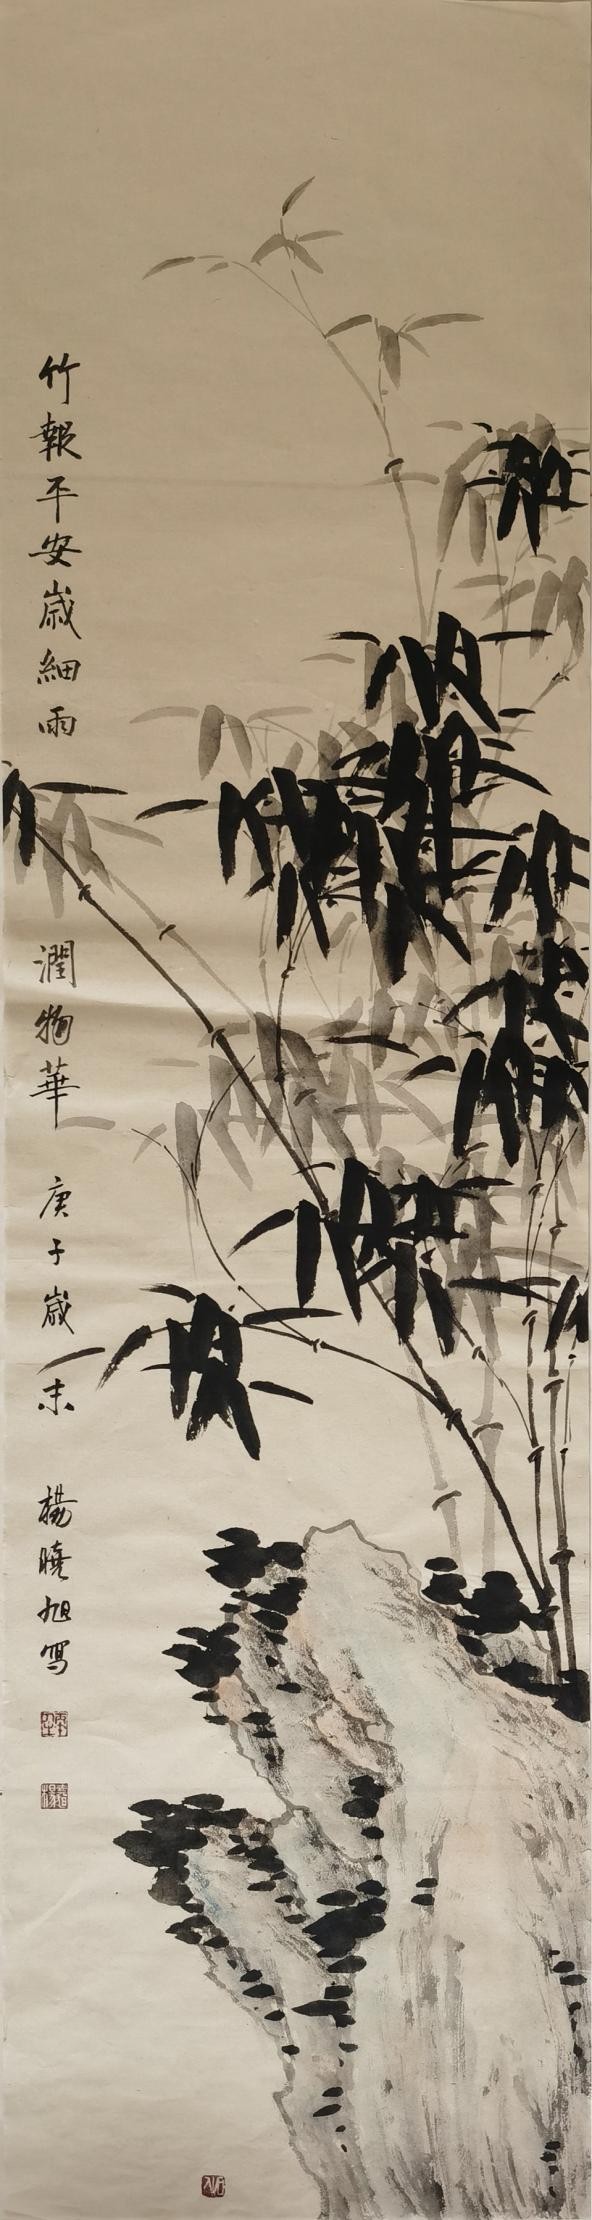 竹報平安歲細雨潤物華庚子歲末楊曉旭寫